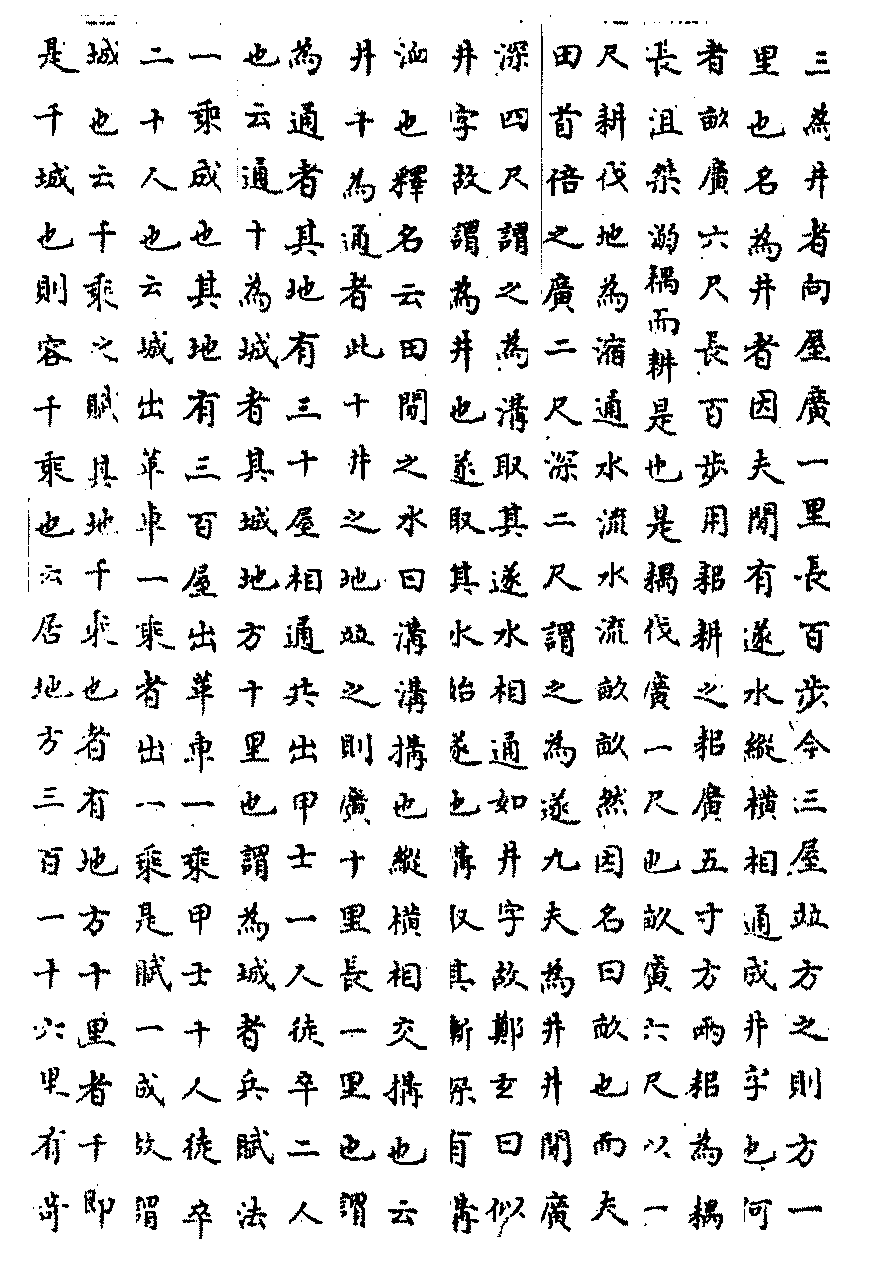 三為井者向屋廣一里長百步今三屋並方之則方一
里也名為井者因夫間有遂水縱橫相通成井字也何
者畝廣六尺長百步用耜耕之耜廣五寸方兩耜為耦
長沮桀溺耦而耕是也是耦伐廣一尺也畝廣六尺以一
尺耕伐地為㴊通水流水流畝畝然因名曰畝也而夫
田首倍之廣二尺深二尺謂之為遂九夫為井井間廣
深四尺謂之為溝取其遂水相通如井字故鄭玄曰似
井字故謂為井也遂取其水始遂也溝取其漸深有溝
洫也釋名云田間之水曰溝溝搆也縱橫相交搆也云
井十為通者此十井之地並之則廣十里長一里也謂
為通者其地有三十屋相通共出甲士一人徒卒二人
也云通十為城者其城地方十里也謂為城者兵賦法
一乘成也其地有三百屋出革車一乘甲士十人徒卒
二十人也云城出革車一乘者出一乘是賦一成故謂
城也云千乘之賦其地千乘也者有地方十里者千即
是千城也則容千乘也云居地方三百一十六里有奇